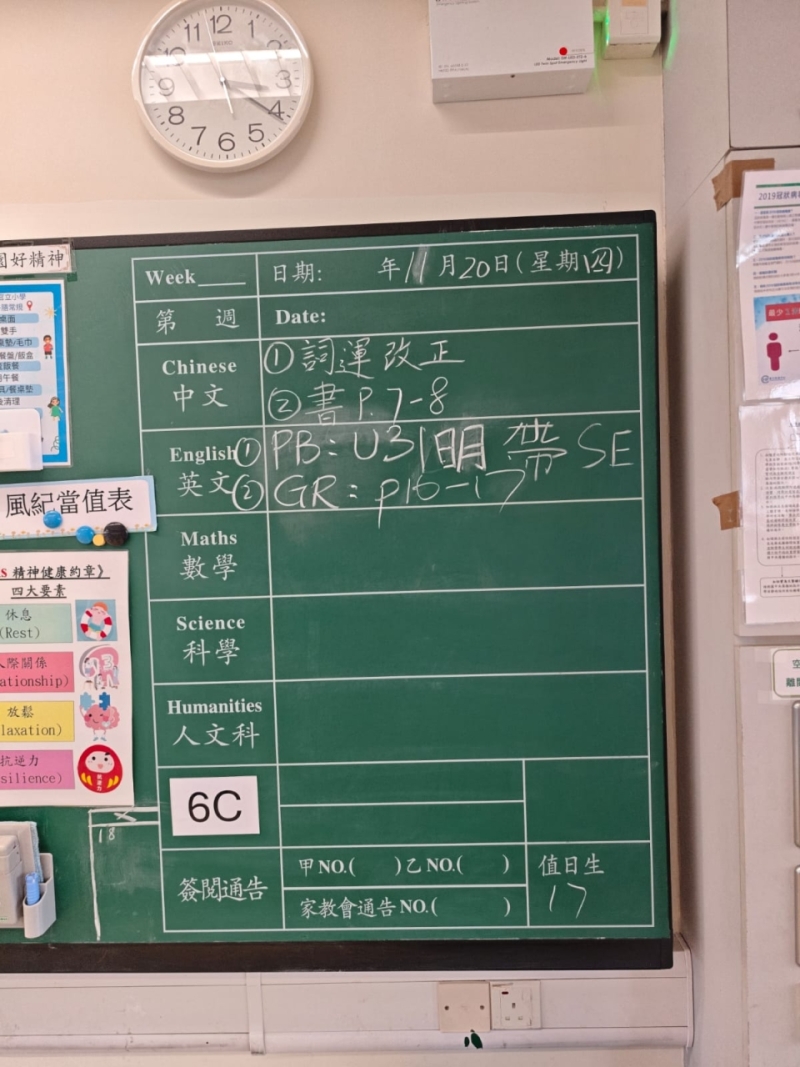 11 12 1 2 3 4 5 6 7 8 9 10
好精神
Week____ 日期: 年11月20日(星期四)
第 週 Date:
Chinese 中文 ①詞運改正
②書P.7-8
English 英文 ①PB:U3|明帶SE
②GR:p16-17
Maths
數學
Science
科學
Humanities
人文科
6C
簽閱通告 甲NO.( )乙NO.( ) 值日生
家教會通告NO.( ) 17
風紀當值表
精神健康約章》
四大要素
休息
(Rest)
人際關係
ationship)
放鬆
laxation)
抗逆力
silience)
18
雙手
桌墊/毛巾
餐盤/飯盒